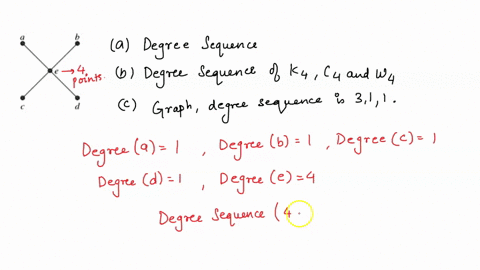 a b
e → 4 points.
c d
(a) Degree Sequence
(b) Degree Sequence of K4, C4 and W4
(c) Graph, degree sequence is 3,1,1.
Degree (a) = 1 , Degree (b) = 1 , Degree (c) = 1
Degree (d) = 1 , Degree (e) = 4
Degree Sequence (4